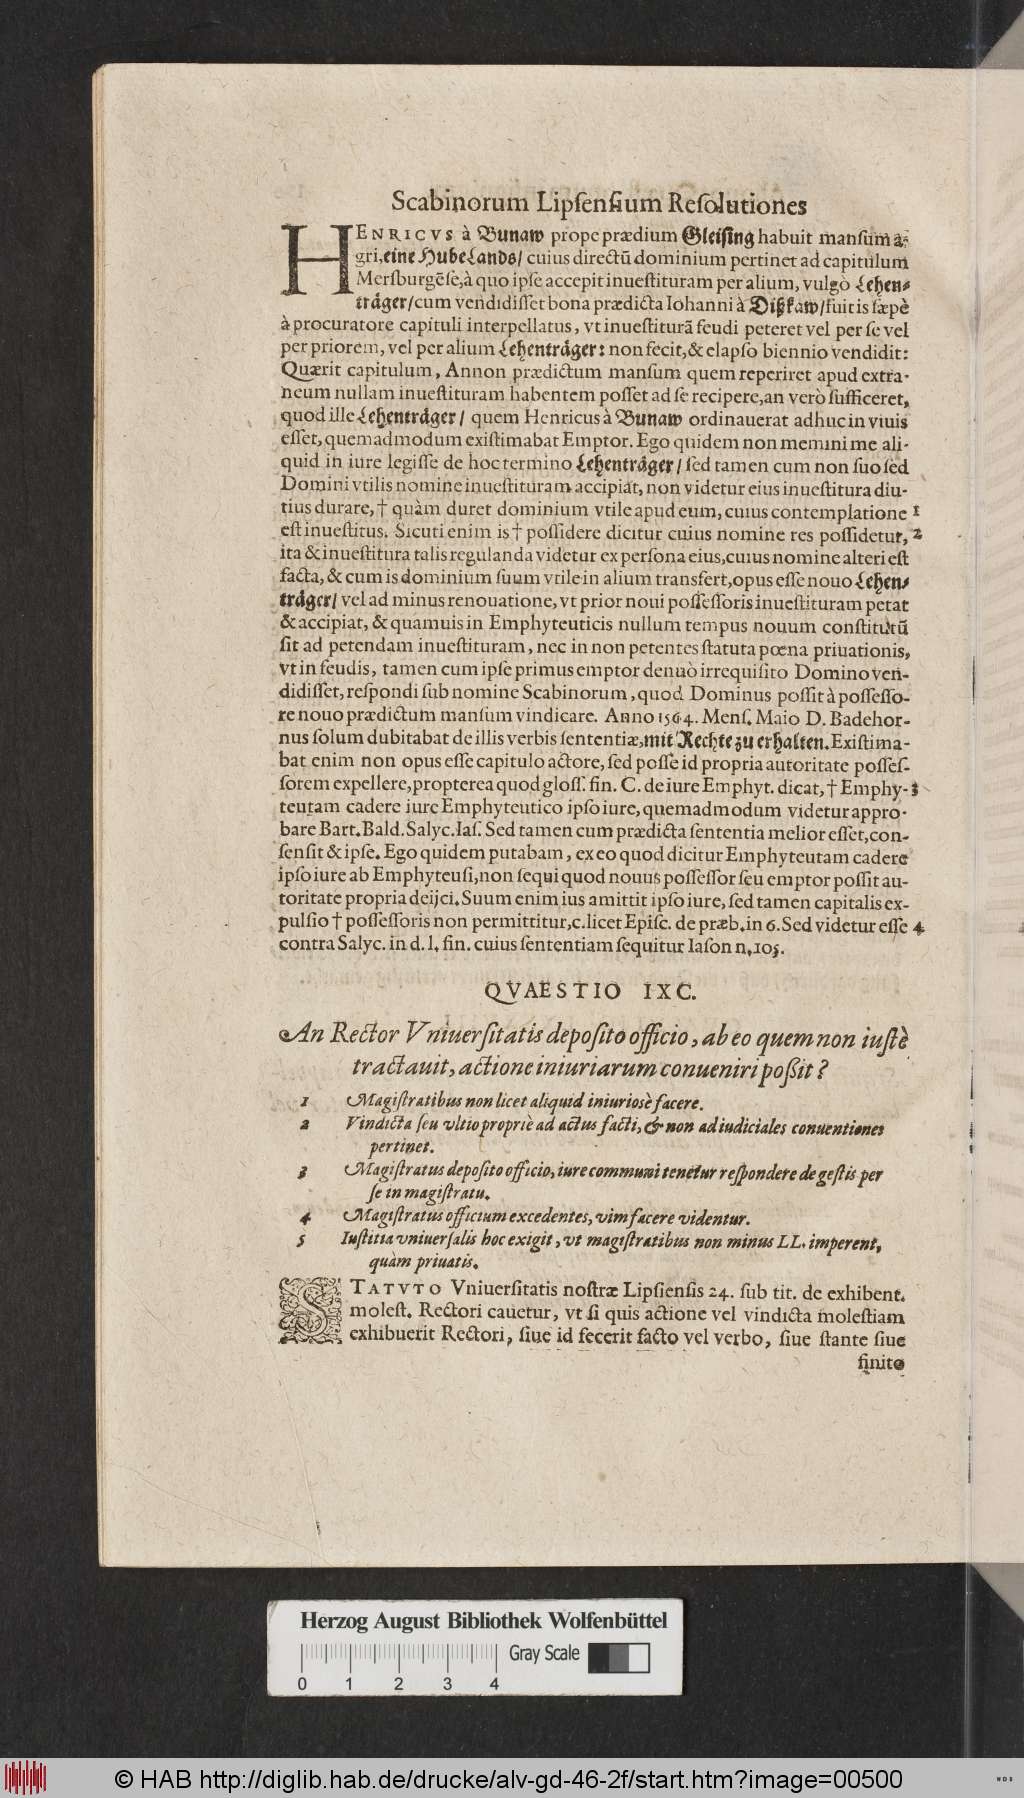 Scabinorum Lipſenſium Reſolutiones
HENRICVS à Bunaw prope prædium Gleiſing habuit manſum a-
gri, eine Hube Lands/ cuius directũ dominium pertinet ad capitulum
Merſburgẽſe, à quo ipſe accepit inueſtituram per alium, vulgò Lehen-
träger/ cum vendidiſſet bona prædicta Iohanni à Dißkaw/ fuit is ſæpè
à procuratore capituli interpellatus, vt inueſtiturã feudi peteret vel per ſe vel
per priorem, vel per alium Lehenträger: non fecit, & elapſo biennio vendidit:
Quærit capitulum, Annon prædictum manſum quem reperiret apud extra-
neum nullam inueſtituram habentem poſſet ad ſe recipere, an verò ſufficeret,
quod ille Lehenträger/ quem Henricus à Bunaw ordinauerat adhuc in viuis
eſſet, quemadmodum exiſtimabat Emptor. Ego quidem non memini me ali-
quid in iure legiſſe de hoc termino Lehenträger/ ſed tamen cum non ſuo ſed
Domini vtilis nomine inueſtituram accipiat, non videtur eius inueſtitura diu-
tius durare, † quàm duret dominium vtile apud eum, cuius contemplatione 1
eſt inueſtitus. Sicuti enim is † poſſidere dicitur cuius nomine res poſſidetur, 2
ita & inueſtitura talis regulanda videtur ex perſona eius, cuius nomine alteri eſt
facta, & cum is dominium ſuum vtile in alium transfert, opus eſſe nouo Lehen-
träger/ vel ad minus renouatione, vt prior noui poſſeſſoris inueſtituram petat
& accipiat, & quamuis in Emphyteuticis nullum tempus nouum conſtitutũ
ſit ad petendam inueſtituram, nec in non petentes ſtatuta pœna priuationis,
vt in feudis, tamen cum ipſe primus emptor denuò irrequiſito Domino ven-
didiſſet, reſpondi ſub nomine Scabinorum, quod Dominus poſſit à poſſeſſo-
re nouo prædictum manſum vindicare. Anno 1564. Menſ. Maio D. Badehor-
nus ſolum dubitabat de illis verbis ſententiæ, mit Rechte zu erhalten. Exiſtima-
bat enim non opus eſſe capitulo actore, ſed poſſe id propria autoritate poſſeſ-
ſorem expellere, propterea quod gloſſ. fin. C. de iure Emphyt. dicat, † Emphy- 3
teutam cadere iure Emphyteutico ipſo iure, quemadmodum videtur appro-
bare Bart. Bald. Salyc. Iaſ. Sed tamen cum prædicta ſententia melior eſſet, con-
ſenſit & ipſe. Ego quidem putabam, ex eo quod dicitur Emphyteutam cadere
ipſo iure ab Emphyteuſi, non ſequi quod nouus poſſeſſor ſeu emptor poſſit au-
toritate propria deijci. Suum enim ius amittit ipſo iure, ſed tamen capitalis ex-
pulſio † poſſeſſoris non permittitur, c. licet Epiſc. de præb. in 6. Sed videtur eſſe 4
contra Salyc. in d. l. fin. cuius ſententiam ſequitur Iaſon n. 105.
QVAESTIO IXC.
An Rector Vniuerſitatis depoſito officio, ab eo quem non iuſtè
tractauit, actione iniuriarum conueniri poßit?
1 Magiſtratibus non licet aliquid iniurioſè facere.
2 Vindicta ſeu vltio propriè ad actus facti, & non ad iudiciales conuentiones
pertinet.
3 Magiſtratus depoſito officio, iure communi tenetur reſpondere de geſtis per
ſe in magiſtratu.
4 Magiſtratus officium excedentes, vim facere videntur.
5 Iuſtitia vniuerſalis hoc exigit, vt magiſtratibus non minus LL. imperent,
quàm priuatis.
STATVTO Vniuerſitatis noſtræ Lipſienſis 24. ſub tit. de exhibent.
moleſt. Rectori cauetur, vt ſi quis actione vel vindicta moleſtiam
exhibuerit Rectori, ſiue id fecerit facto vel verbo, ſiue ſtante ſiue
finito
Herzog August Bibliothek Wolfenbüttel
Gray Scale
0 1 2 3 4
© HAB http://diglib.hab.de/drucke/alv-gd-46-2f/start.htm?image=00500